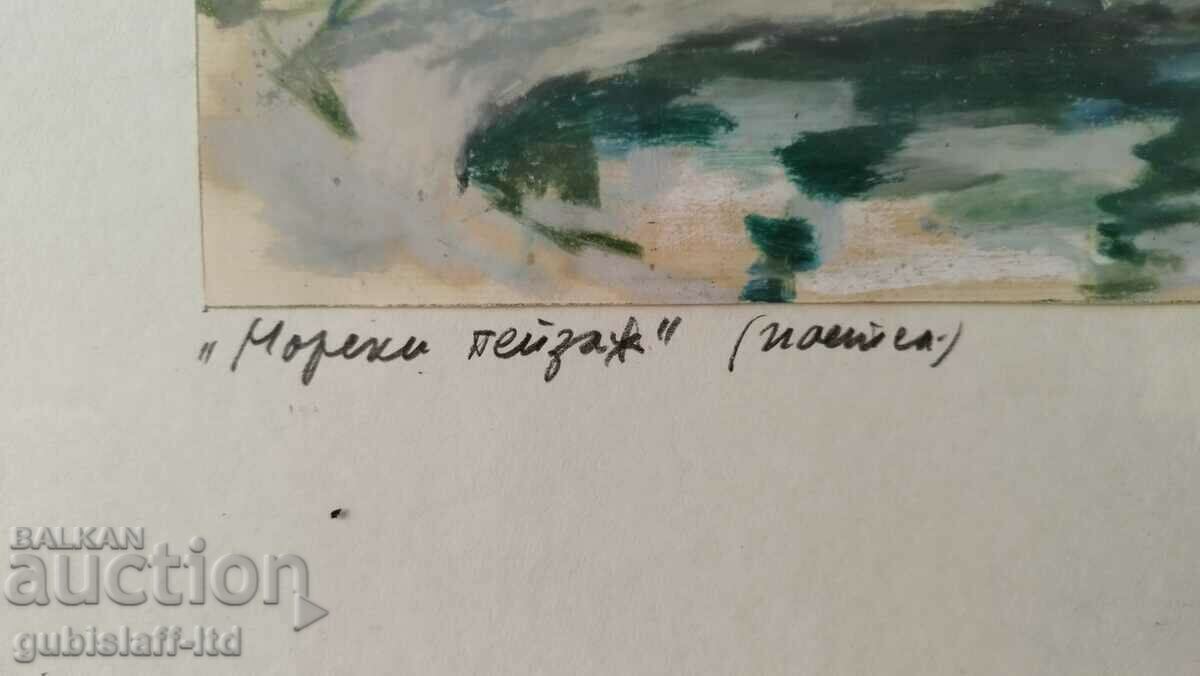 „Морски пейзаж" (пастел)
BALKAN
auction
gubislaff-ltd